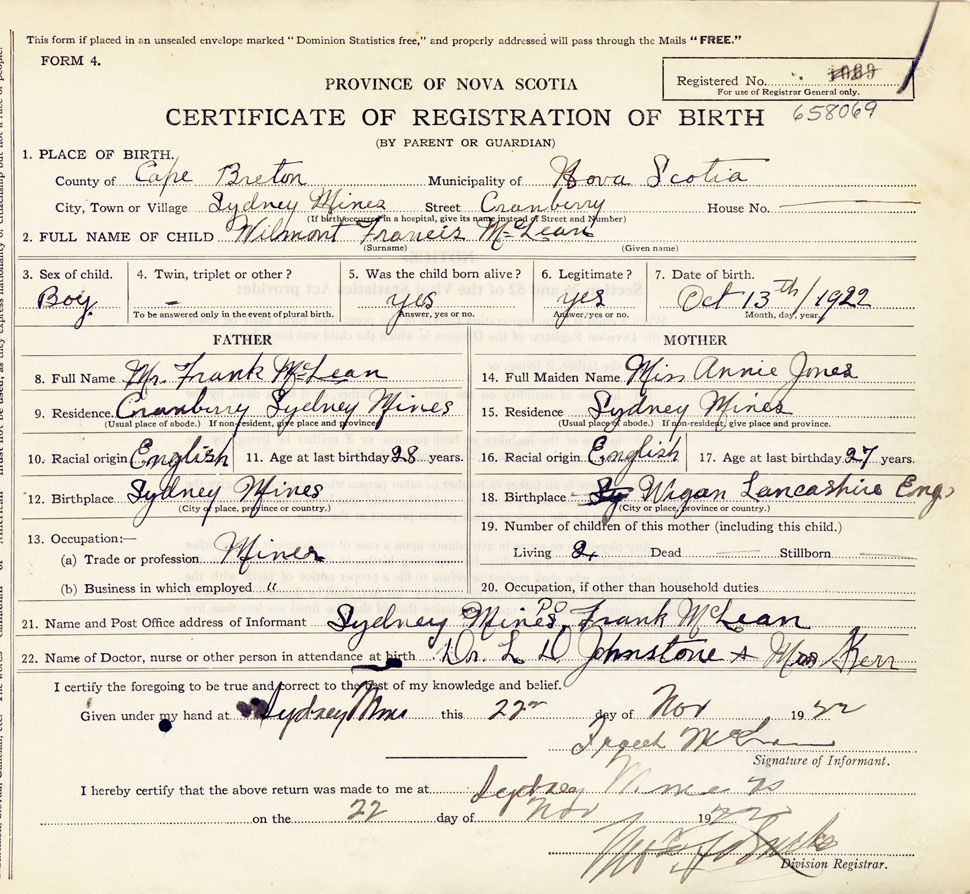 This form if placed in an unsealed envelope marked "Dominion Statistics free," and properly addressed will pass through the Mails "FREE."
FORM 4.
PROVINCE OF NOVA SCOTIA
Registered No. 1089
For use of Registrar General only.
658069
CERTIFICATE OF REGISTRATION OF BIRTH
(BY PARENT OR GUARDIAN)
1. PLACE OF BIRTH.
County of Cape Breton Municipality of Nova Scotia
City, Town or Village Sydney Mines Street Cranberry House No.
(If birth occurred in a hospital, give its name instead of Street and Number)
2. FULL NAME OF CHILD Wilmont Francis McLean
(Surname) (Given name)
3. Sex of child. 4. Twin, triplet or other? 5. Was the child born alive? 6. Legitimate? 7. Date of birth.
Boy. - yes yes Oct 13th/1922
To be answered only in the event of plural birth. Answer, yes or no. Answer, yes or no. Month, day, year
FATHER MOTHER
8. Full Name Mr. Frank McLean 14. Full Maiden Name Miss Annie Jones
9. Residence. Cranberry Sydney Mines 15. Residence Sydney Mines
(Usual place of abode.) If non-resident, give place and province. (Usual place of abode.) If non-resident, give place and province.
10. Racial origin English 11. Age at last birthday 28 years. 16. Racial origin English 17. Age at last birthday 27 years.
12. Birthplace Sydney Mines 18. Birthplace Sy Wigan Lancashire Eng
(City or place, province or country.) (City or place, province or country.)
19. Number of children of this mother (including this child.)
13. Occupation:—
(a) Trade or profession Miner Living 2 Dead Stillborn
(b) Business in which employed " 20. Occupation, if other than household duties
21. Name and Post Office address of Informant Sydney Mines P.O. Frank McLean
22. Name of Doctor, nurse or other person in attendance at birth Dr. L D Johnstone & Mrs Kerr
I certify the foregoing to be true and correct to the best of my knowledge and belief.
Given under my hand at Sydney Mines this 22 day of Nov 1922
McLean
Signature of Informant.
I hereby certify that the above return was made to me at Sydney Mines
on the 22 day of Nov 1922
Division Registrar.